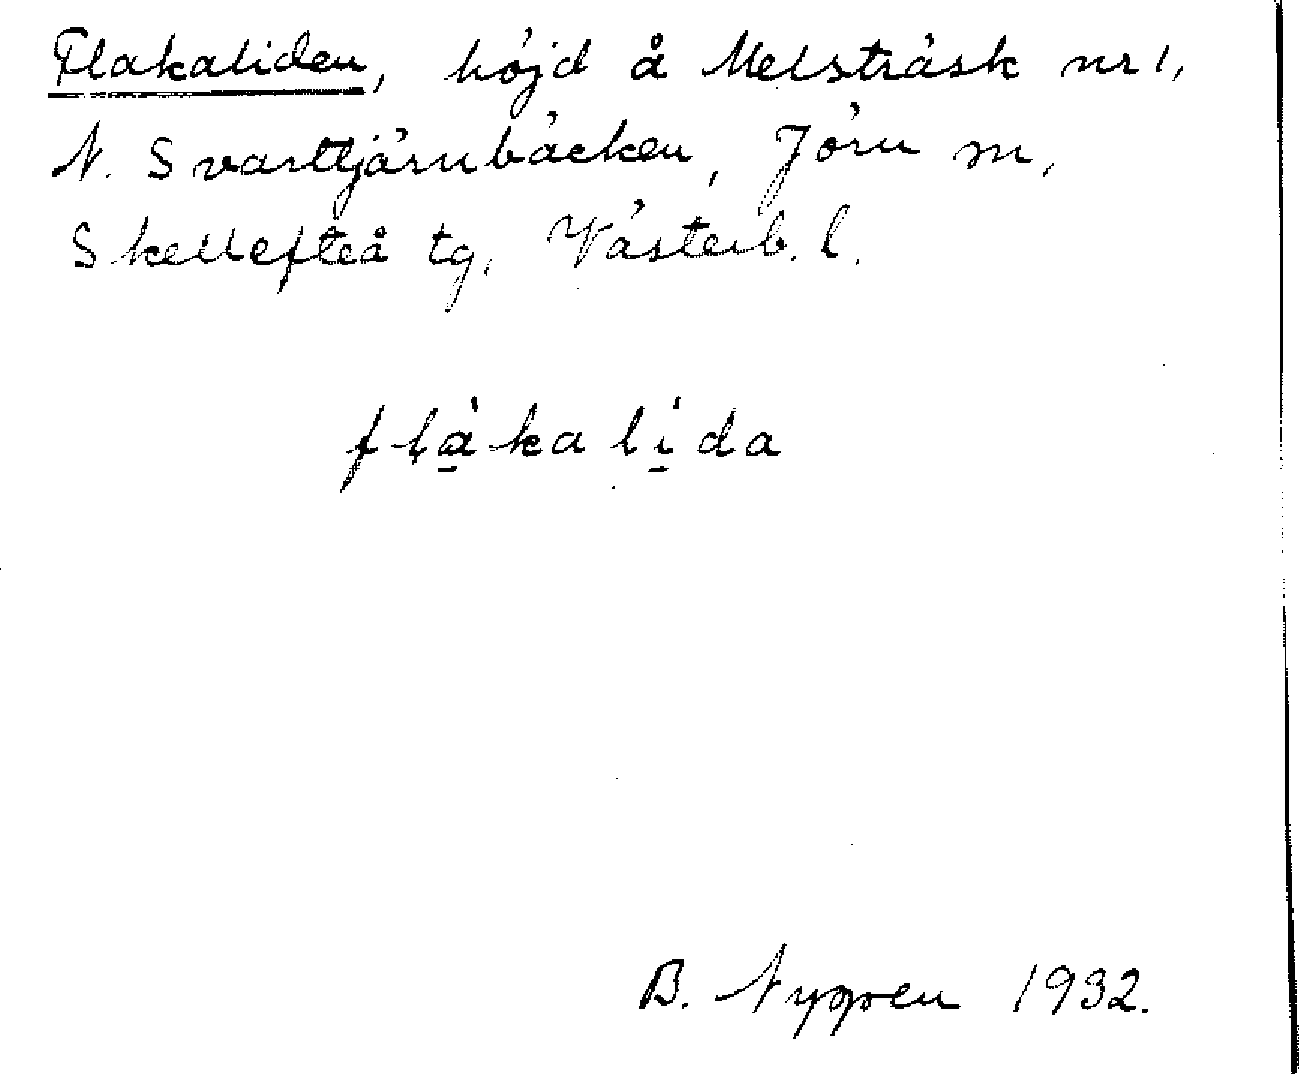 Flakaliden, höjd å Melsträsk nr 1,
N. Svarttjärnbäcken, Jörn sn,
Skellefteå tg, Västerb. l.
flà̱kalí̱da
B. Nygren 1932.